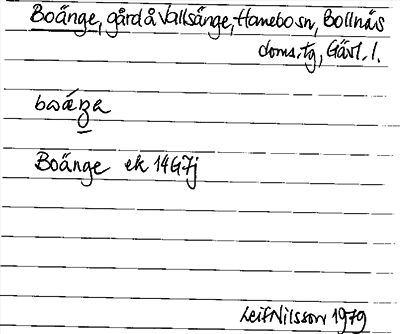 Boänge, gård å Vallsänge, Hanebo sn, Bollnäs
doms.tg, Gävl. l.
Boänge ek 14G7j
Leif Nilsson 1979